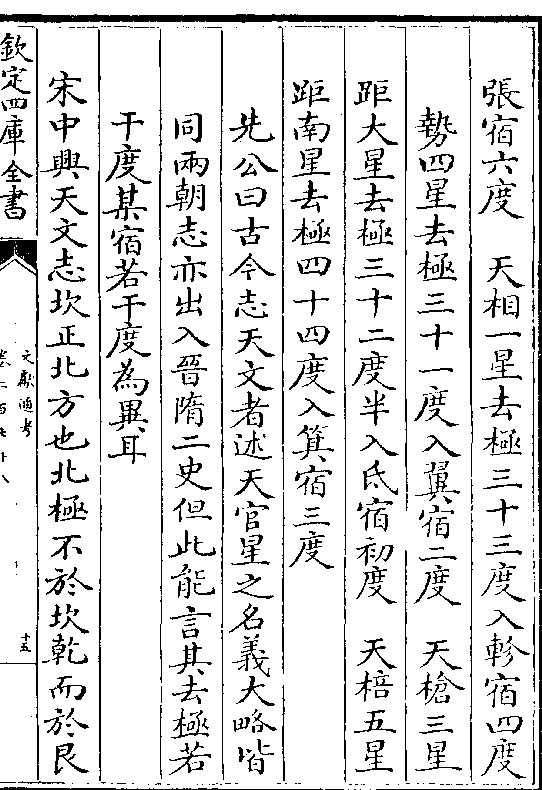 張宿六度　天相一星去極三十三度入軫宿四度
勢四星去極三十一度入翼宿二度　天槍三星
距大星去極三十二度半入氐宿初度　天棓五星
距南星去極四十四度入箕宿三度
先公曰古今志天文者述天官星之名義大略皆
同兩朝志亦出入晉隋二史但此能言其去極若
干度某宿若干度為異耳
宋中興天文志坎正北方也北極不於坎乾而於艮
欽定四庫全書
文獻通考
卷二百七十八
十五